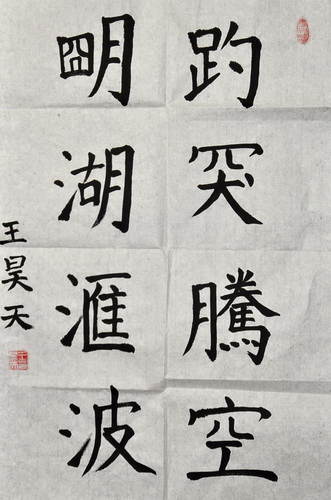 趵突騰空
朙湖滙波
王昊天